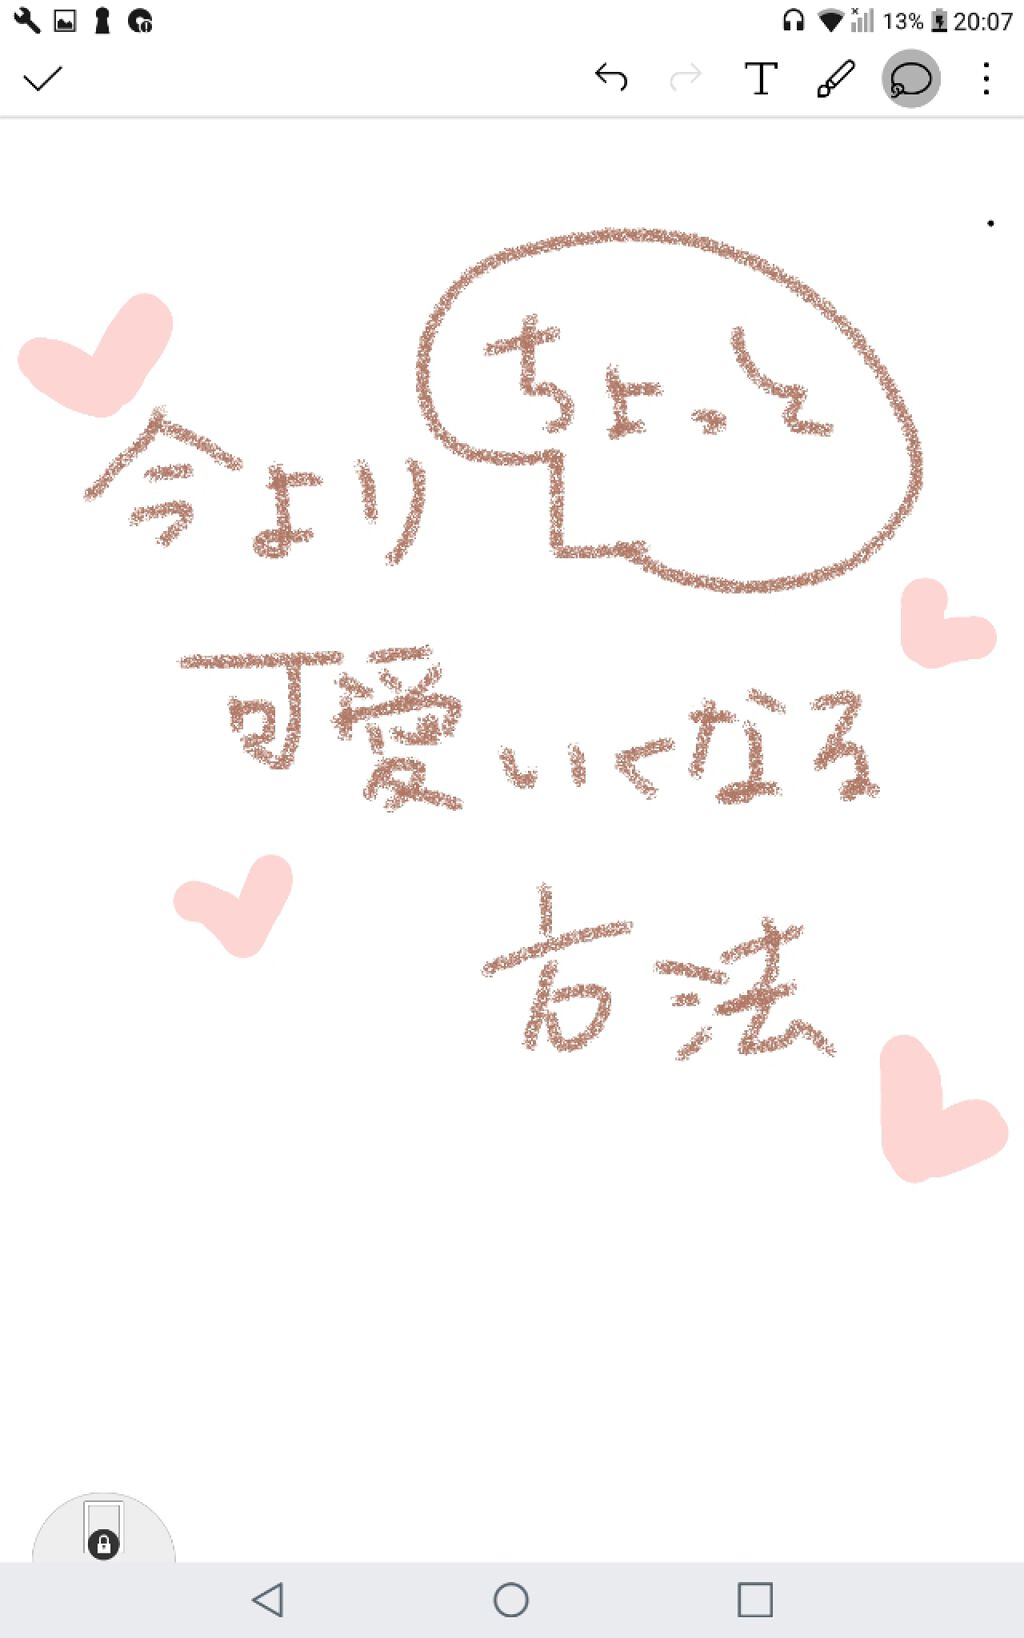 13% 20:07
T
ちょっと
今より
可愛いくなる
方法